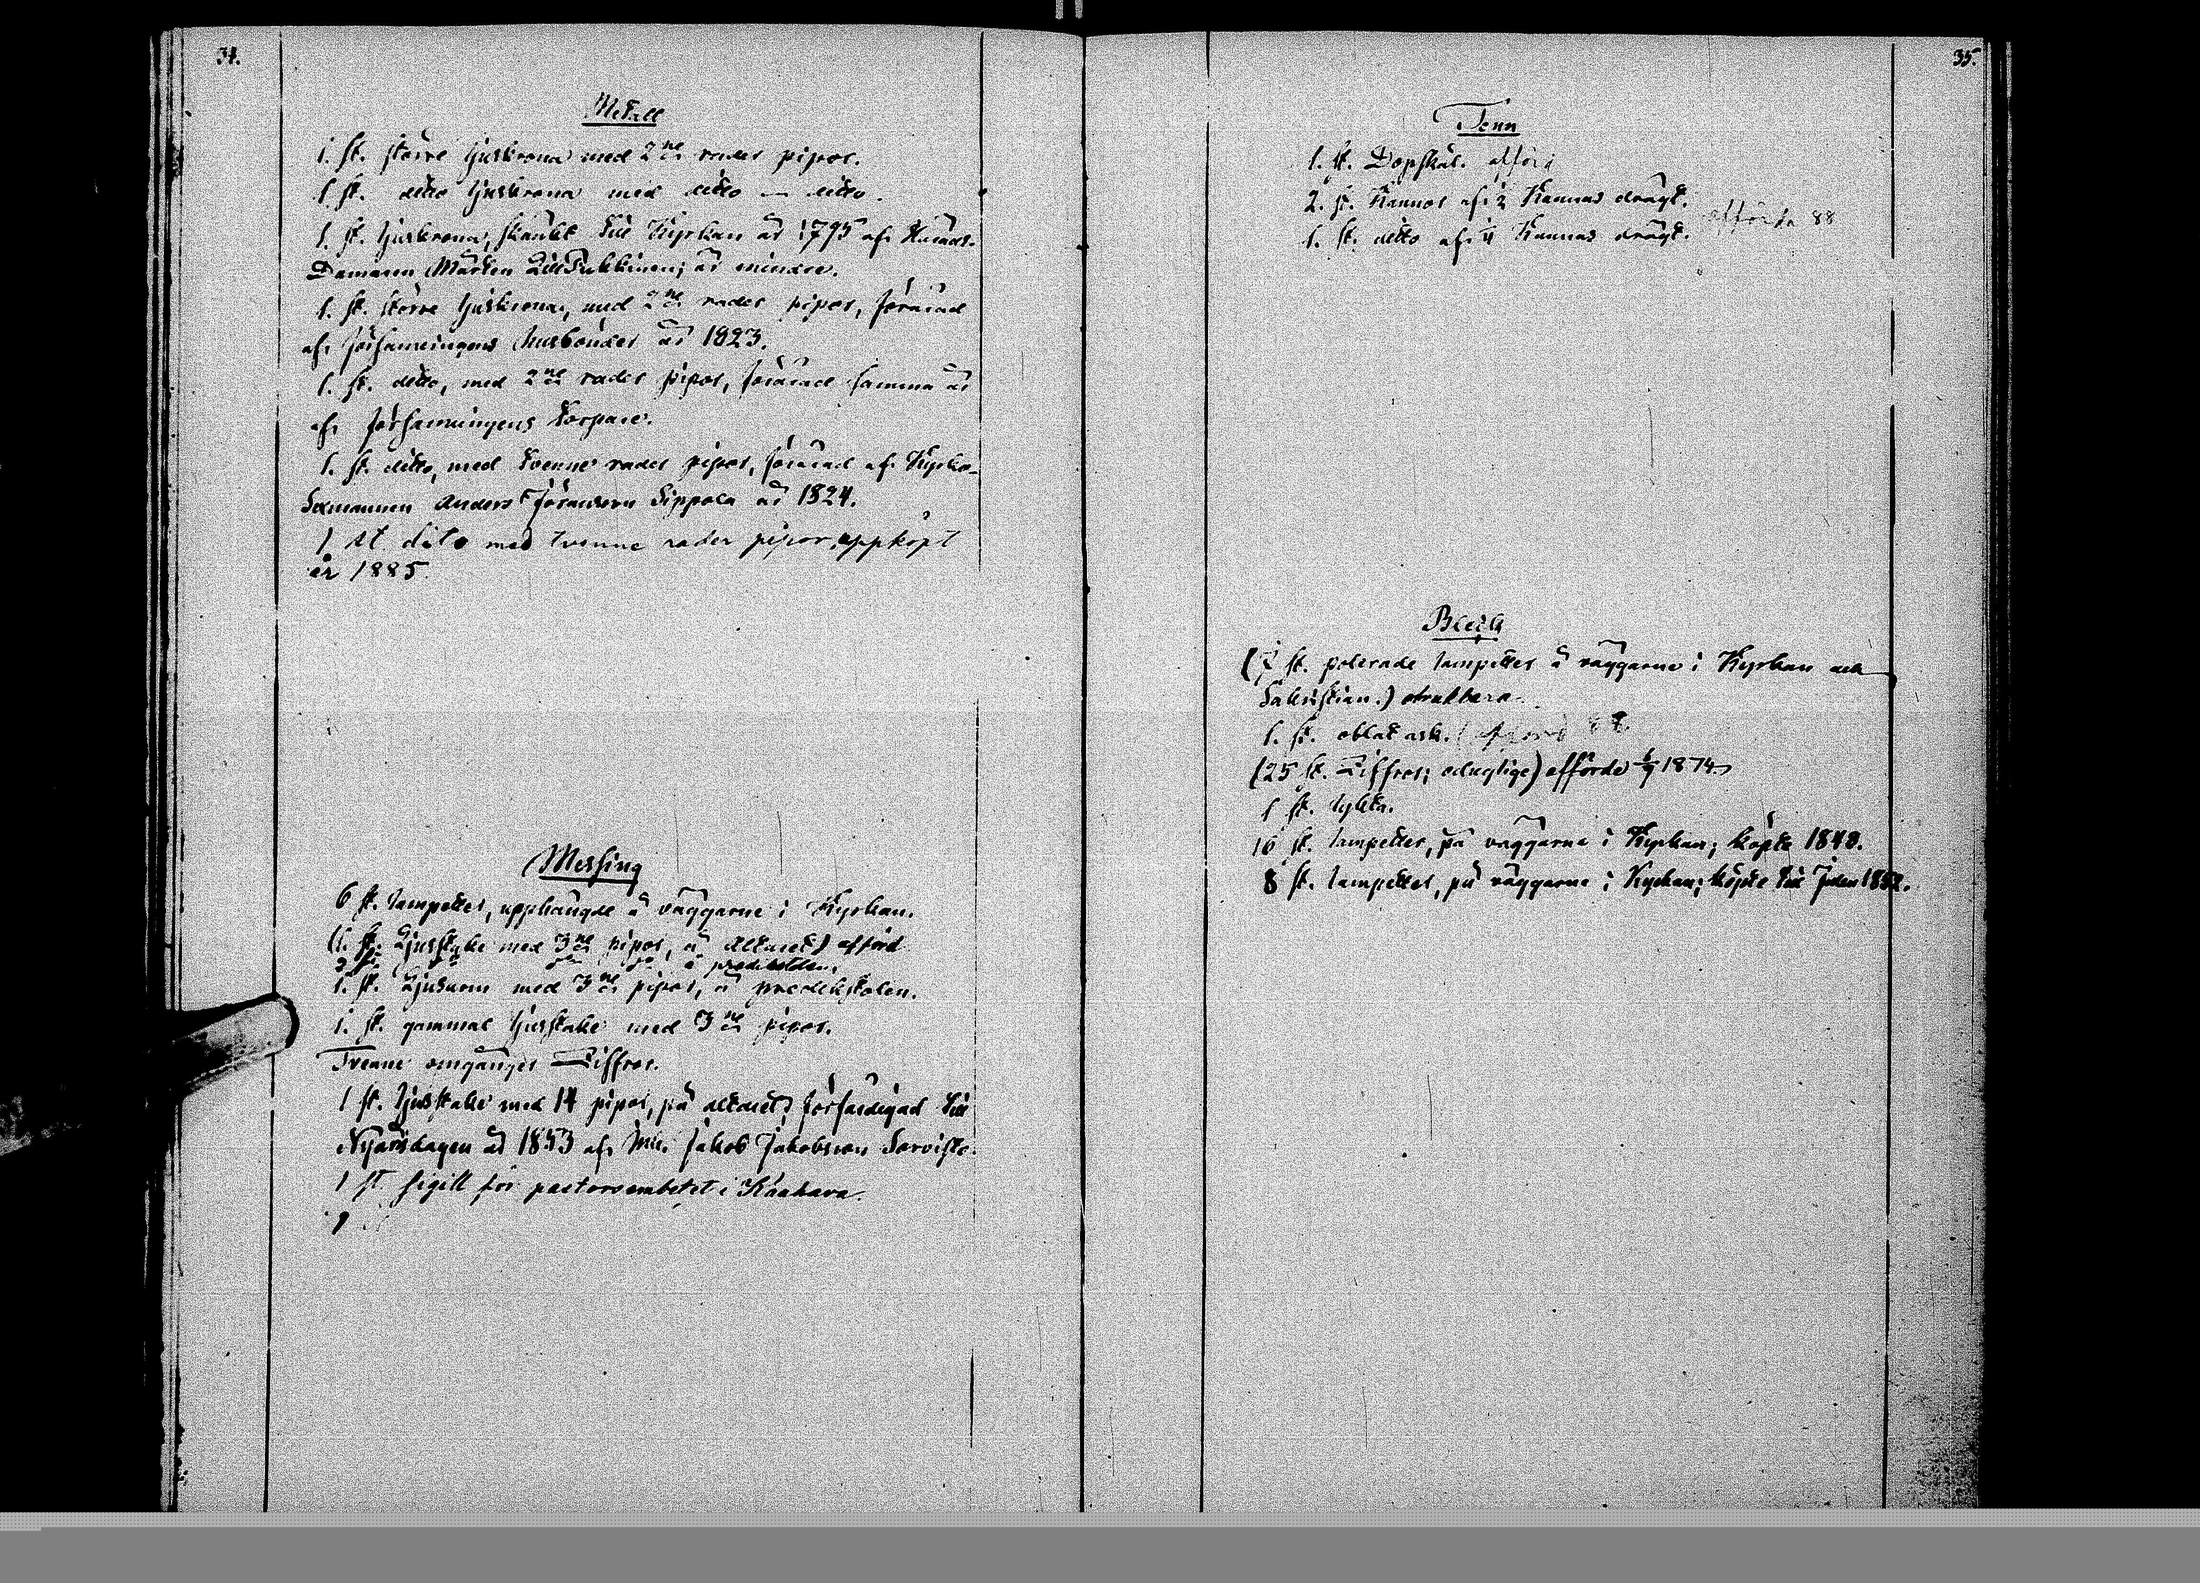 34.
Metall
1. st. större ljuskrona med 2ne rader pipor.
1 st. ditto ljuskrona med ditto — ditto.
1. st. ljuskrona, skänkt till Kyrkan år 1795 af Härads-
Domaren Mårten Lill Pukkinen; är mindre.
1. st. större ljuskrona, med 2ne rader pipor, förärad
af församlingens husbönder år 1823.
1. st. ditto, med 2ne rader pipor, förärad samma år
af församlingens torpare.
1. st. ditto, med tvenne rader pipor, förärad af Kyrko-
Sexmannen Anders Göransson Sippola år 1824.
1 st dito med tvenne rader pipor, uppköpt
år 1885.
Messing
6 st. lampetter, upphängde å väggarne i Kyrkan.
(1. st. Ljusstake med 3ne pipor, å altaret) afförd
å predikstolen.
1. st. Ljusarm med 3ne pipor, å predikstolen.
1. st. gammal ljusstake med 3ne pipor.
Tvenne omgånger Ziffror.
1 st. ljusstake med 14 pipor, på altaret; förfärdigad till
Nyårsdagen år 1853 af Jakob Jakobsson Sorvisto.
1 st sigill för pastorsembetet i Kauhava.
1
35.
Tenn
1. st. Dopskål. afförd
2. st. Kannor af 2 Kannas drägt.
afförda 88
1. st. ditto af 4 Kannas drägt.
Bleck
(7 st. polerade lampetter å väggarne i Kyrkan och
Sakristian.) obrukbara.
1. st. oblat ask. (afförd 88
(25 st. Ziffror; oduglige) afförde 1874.
1 st. lykta.
16 st. lampetter, på väggarne i Kyrkan; köpte 1848.
8 st. lampetter, på väggarne i Kyrkan; köpte till Julen 1852.